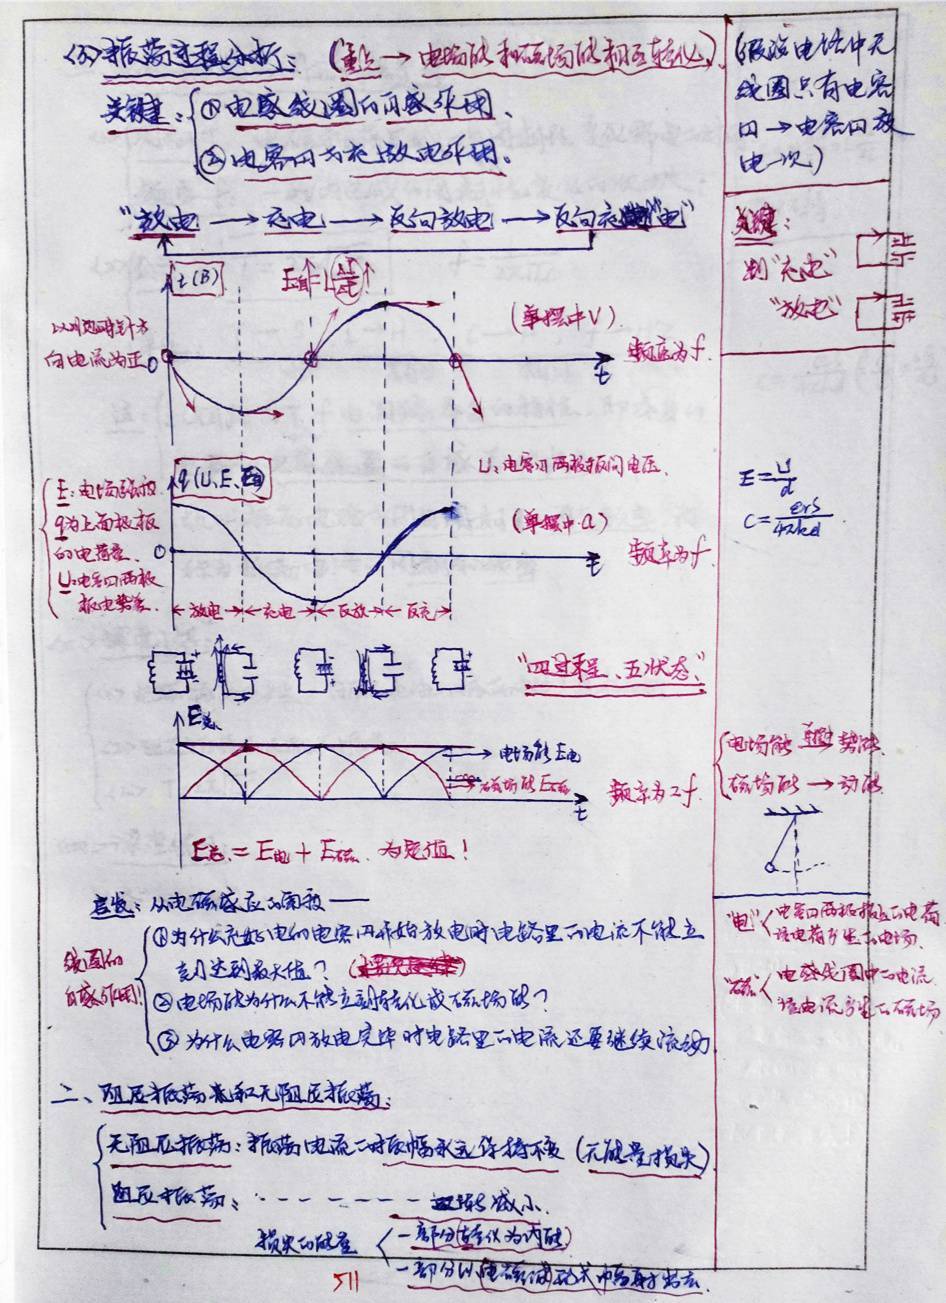 <5>振荡过程分析: (重点→电场能和磁场能相互转化)
关键: ①电感线圈的自感作用.
②电容器的充放电作用.
"放电→充电→反向放电→反向充电"
i(B)
E自=L ΔI/Δt
以逆时针方
向电流为正
0
(单摆中V)
频率为f.
t
q(U、E、E电)
U:电容器两极板间电压.
(单摆中a)
E:电场强度.
q为上面极板
的电荷量.
U:电容器两极
板电势差.
0
频率为f
t
放电 充电 反放 反充
"四过程、五状态"
E总
电场能E电
磁场能E磁
频率为2f.
t
E总=E电+E磁 为定值!
意识:从电磁感应的角度——
线圈的
自感作用!
①为什么充好电的电容器开始放电时电路里的电流不能立
刻达到最大值?
②电场能为什么不能立刻转化成磁场能?
③为什么电容器放电完毕时电路里的电流还要继续流动
二、阻尼振荡和无阻尼振荡:
无阻尼振荡:振荡电流的振幅永远保持不变(无能量损失)
阻尼振荡: - - - - - - 逐渐减小.
损失的能量 一部分转化为内能
一部分以电磁波形式向外辐射出去
511
(假设电路中无
线圈只有电容
器→电容器放
电一次)
关键:
判"充电"
"放电"
E=U/d
C=εrS/4πkd
电场能 → 势能
磁场能 → 动能
"电" 电容器两极板上的电荷
该电荷产生的电场.
"磁" 电感线圈中的电流
该电流产生的磁场